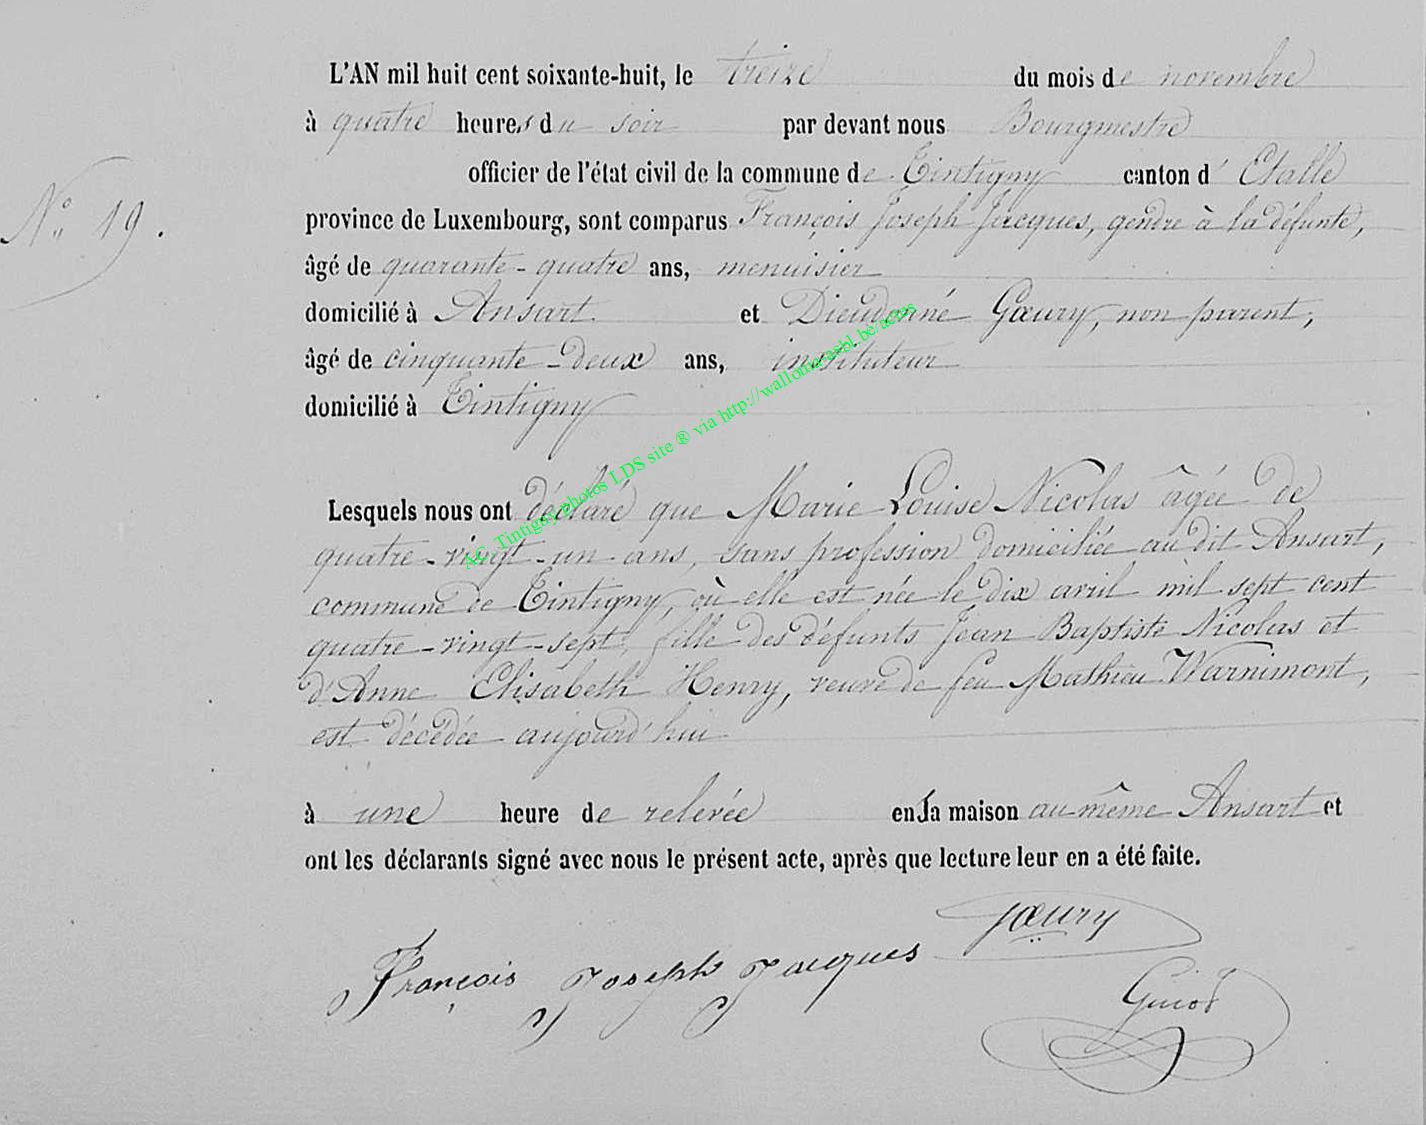 L'AN mil huit cent soixante-huit, le treize du mois de novembre
à quatre heures du soir par devant nous Bourgmestre
officier de l'état civil de la commune de Tintigny canton d' Etalle
N° 19.
province de Luxembourg, sont comparus François Joseph Jacques, gendre à la défunte,
âgé de quarante-quatre ans, menuisier
domicilié à Ansart et Dieudonné Gœury, non parent,
âgé de cinquante-deux ans, instituteur
domicilié à Tintigny
AC. Tintigny photos LDS site ® via http://wallonia-asbl.be/actes
Lesquels nous ont déclaré que Marie Louise Nicolas âgée de
quatre-vingt-un ans, sans profession domiciliée au dit Ansart,
commune de Tintigny, où elle est née le dix avril mil sept cent
quatre-vingt-sept, fille des défunts Jean Baptiste Nicolas et
d'Anne Elisabeth Henry, veuve de feu Mathieu Warnimont,
est décédée aujourd'hui
à une heure de relevée en la maison au même Ansart et
ont les déclarants signé avec nous le présent acte, après que lecture leur en a été faite.
Gœury
François Joseph Jacques